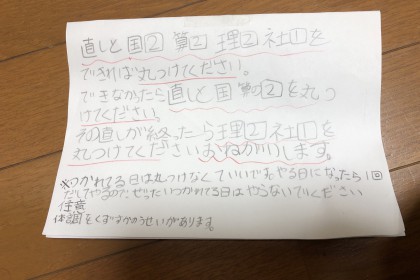 直しと国② 算② 理② 社①を
できれば丸つけてください。
できなかったら直しと国 算②を丸つ
けてください。
その直しが終ったら理②社①を
丸つけてくださいおねがいします。
※つかれてる日は丸つけなくていいでもやる日になったら1回
だしてやるの?ぜったいつかれてる日はやらないでください
任意
体調をくずすかのうせいがあります。